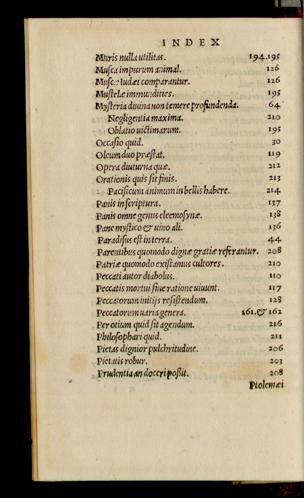 INDEX
Muris nulla utilitas. 194.195
Musca impurum animal. 126
Muscæ Iudæi comparantur. 126
Mustelæ immundities. 195
Mysteria diuina non temere profundenda. 64
Negligentia maxima. 210
Oblatio uictimarum. 195
Occasio quid. 30
Oleum duo præstat. 119
Opera diuturna quæ. 212
Orationis quis sit finis. 213
Pacificum animum in bellis habere. 214
Panis in scriptura. 137
Panis omne genus eleemosynæ. 138
Pane mystico & uino ali. 136
Paradisus est in terra. 44
Parentibus quomodo dignæ gratiæ referantur. 208
Patriæ quomodo existamus cultores. 210
Peccati autor diabolus. 110
Peccatis mortui siue ratione uiuunt. 117
Peccatorum initijs resistendum. 128
Peccatorum uaria genera. 161.& 162
Per otium quid sit agendum. 216
Philosophari quid. 211
Pietas dignior pulchritudine. 206
Pietatis robur. 203
Prudentia an doceri possit. 208
Ptolemæi